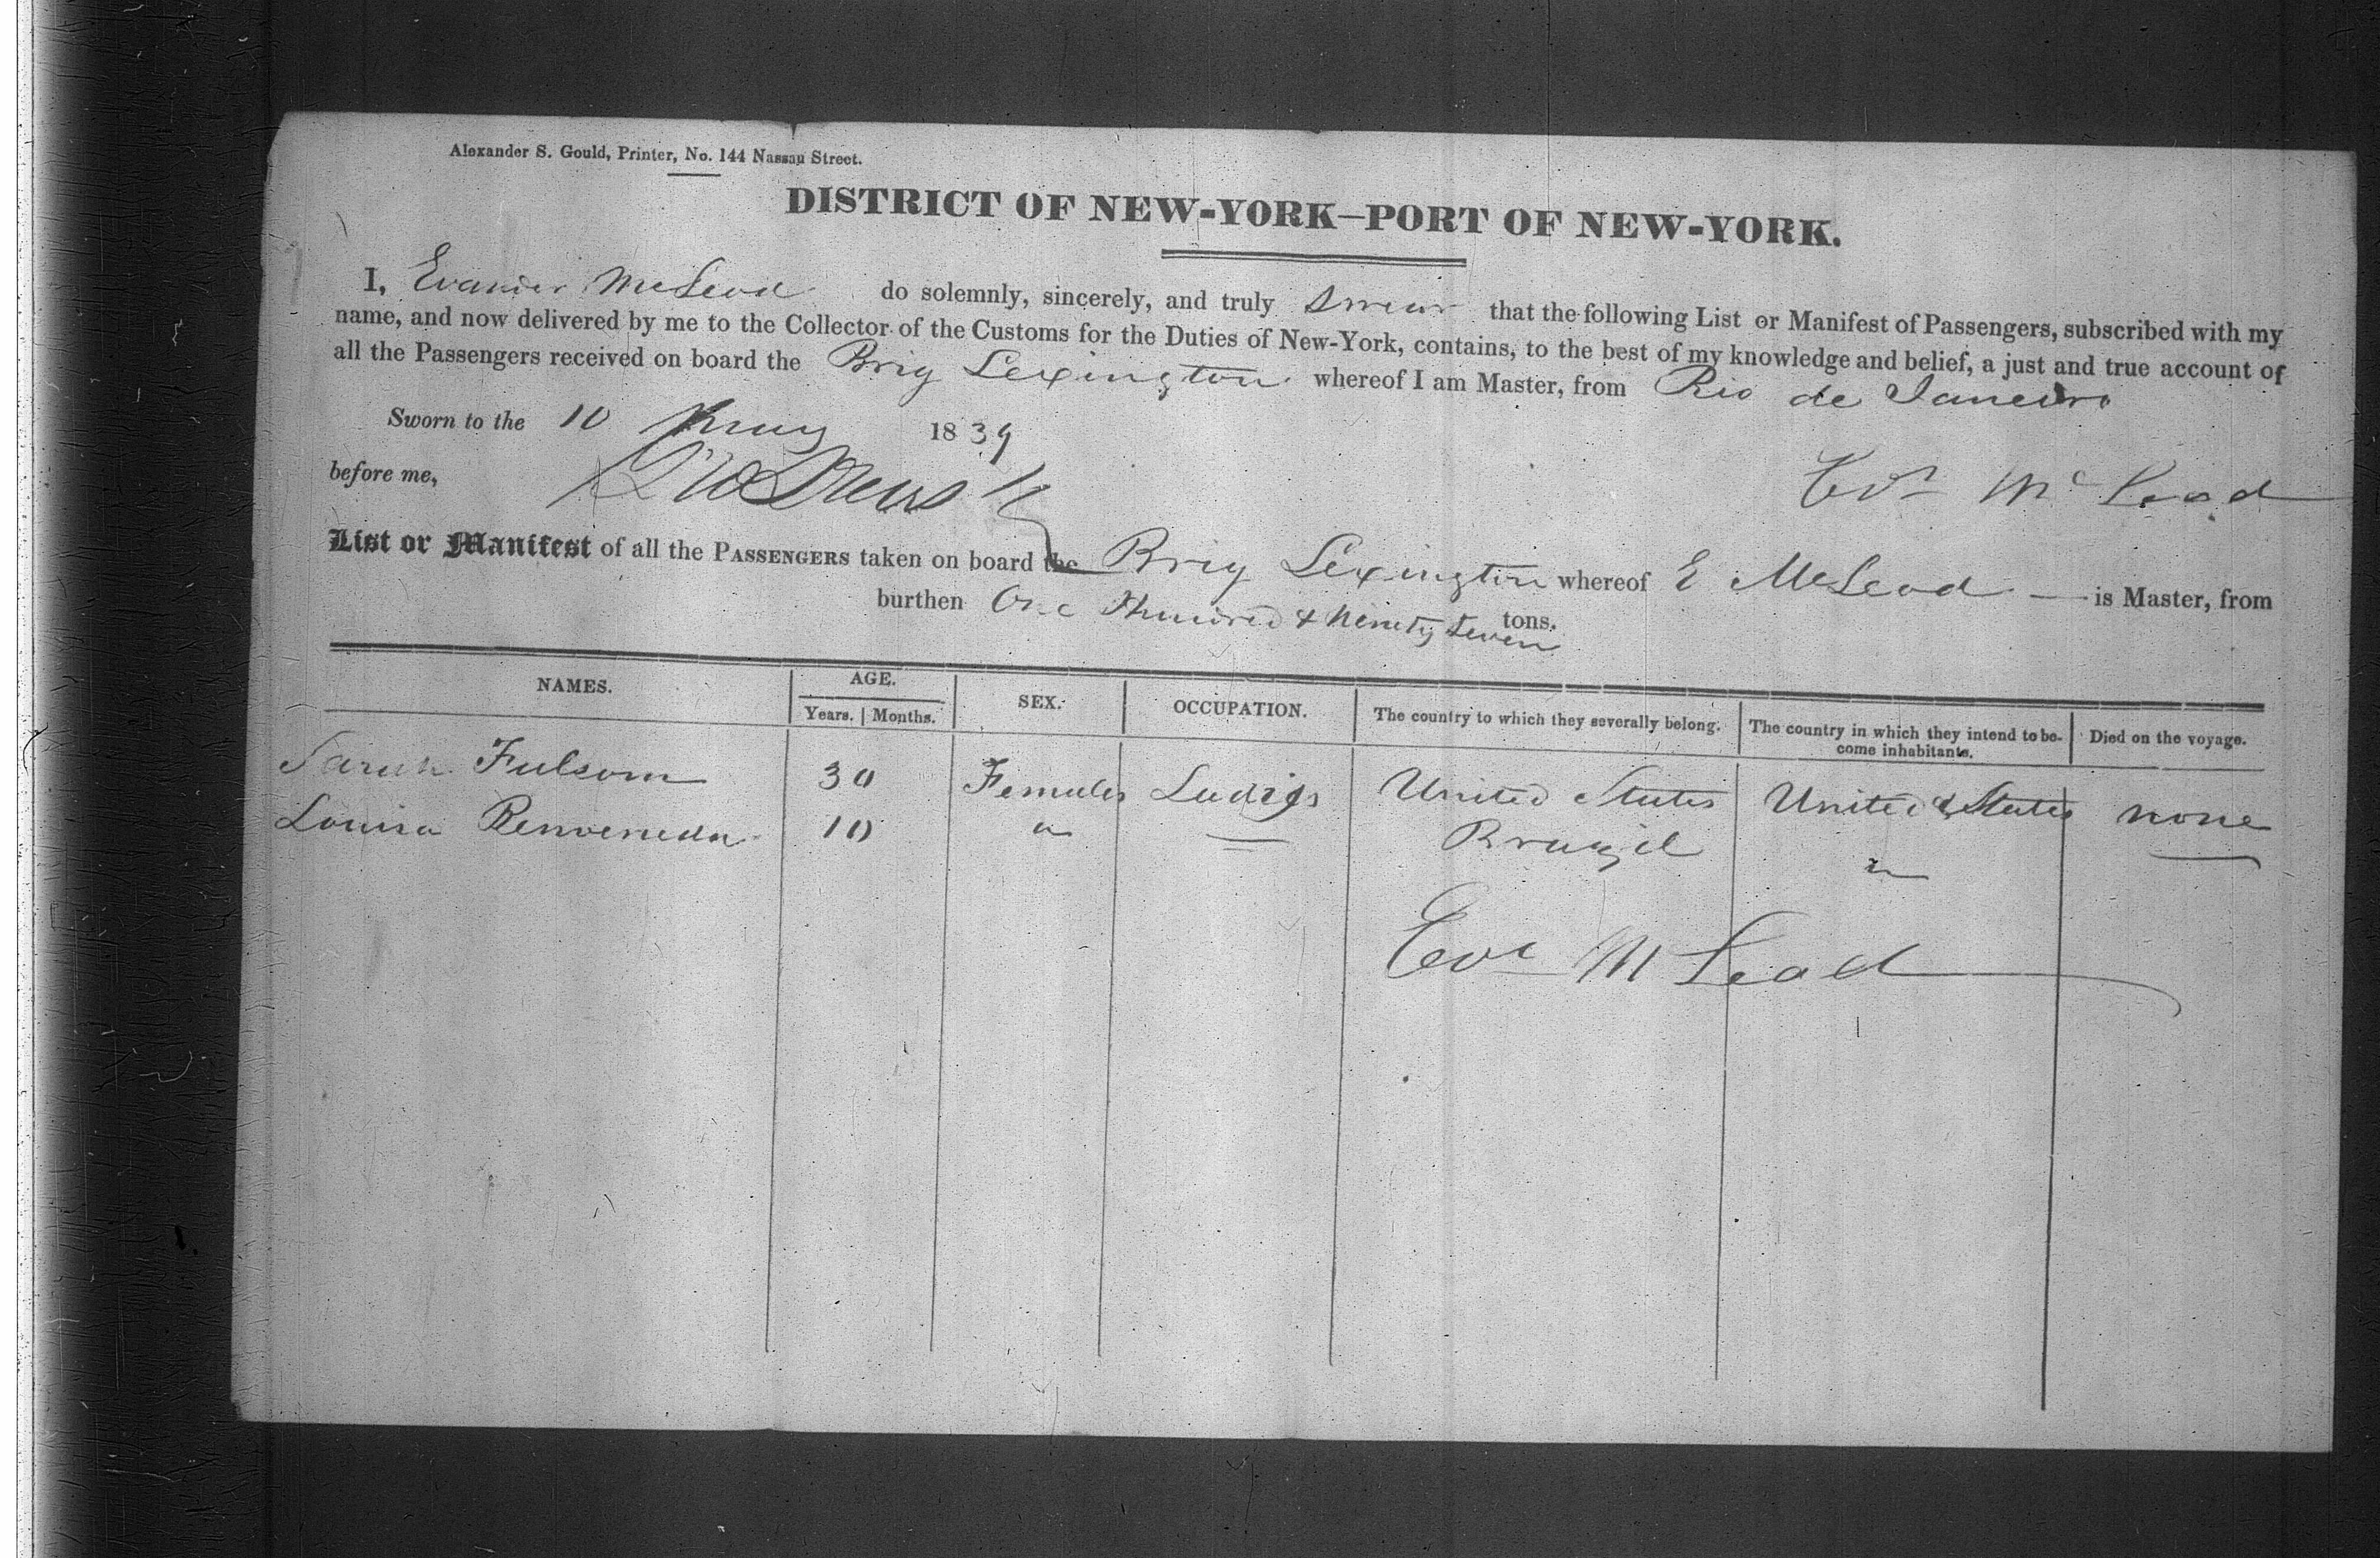 Alexander S. Gould, Printer, No. 144 Nassau Street.
DISTRICT OF NEW-YORK—PORT OF NEW-YORK.
I, Evander McLeod do solemnly, sincerely, and truly swear that the following List or Manifest of Passengers, subscribed with my
name, and now delivered by me to the Collector of the Customs for the Duties of New-York, contains, to the best of my knowledge and belief, a just and true account of
all the Passengers received on board the Brig Lexington whereof I am Master, from Rio de Janeiro
Sworn to the 10 May 1839
before me,
Evr McLeod
List or Manifest of all the PASSENGERS taken on board the Brig Lexington whereof E McLeod — is Master, from
burthen One Hundred & Ninety Seven tons.
NAMES. AGE. SEX. OCCUPATION. The country to which they severally belong. The country in which they intend to be- Died on the voyage.
Years. Months. come inhabitants.
Sarah Fulsom 30 Females Ladies United States United States none
Louisa 10 " Brazil "
Evr M Leod